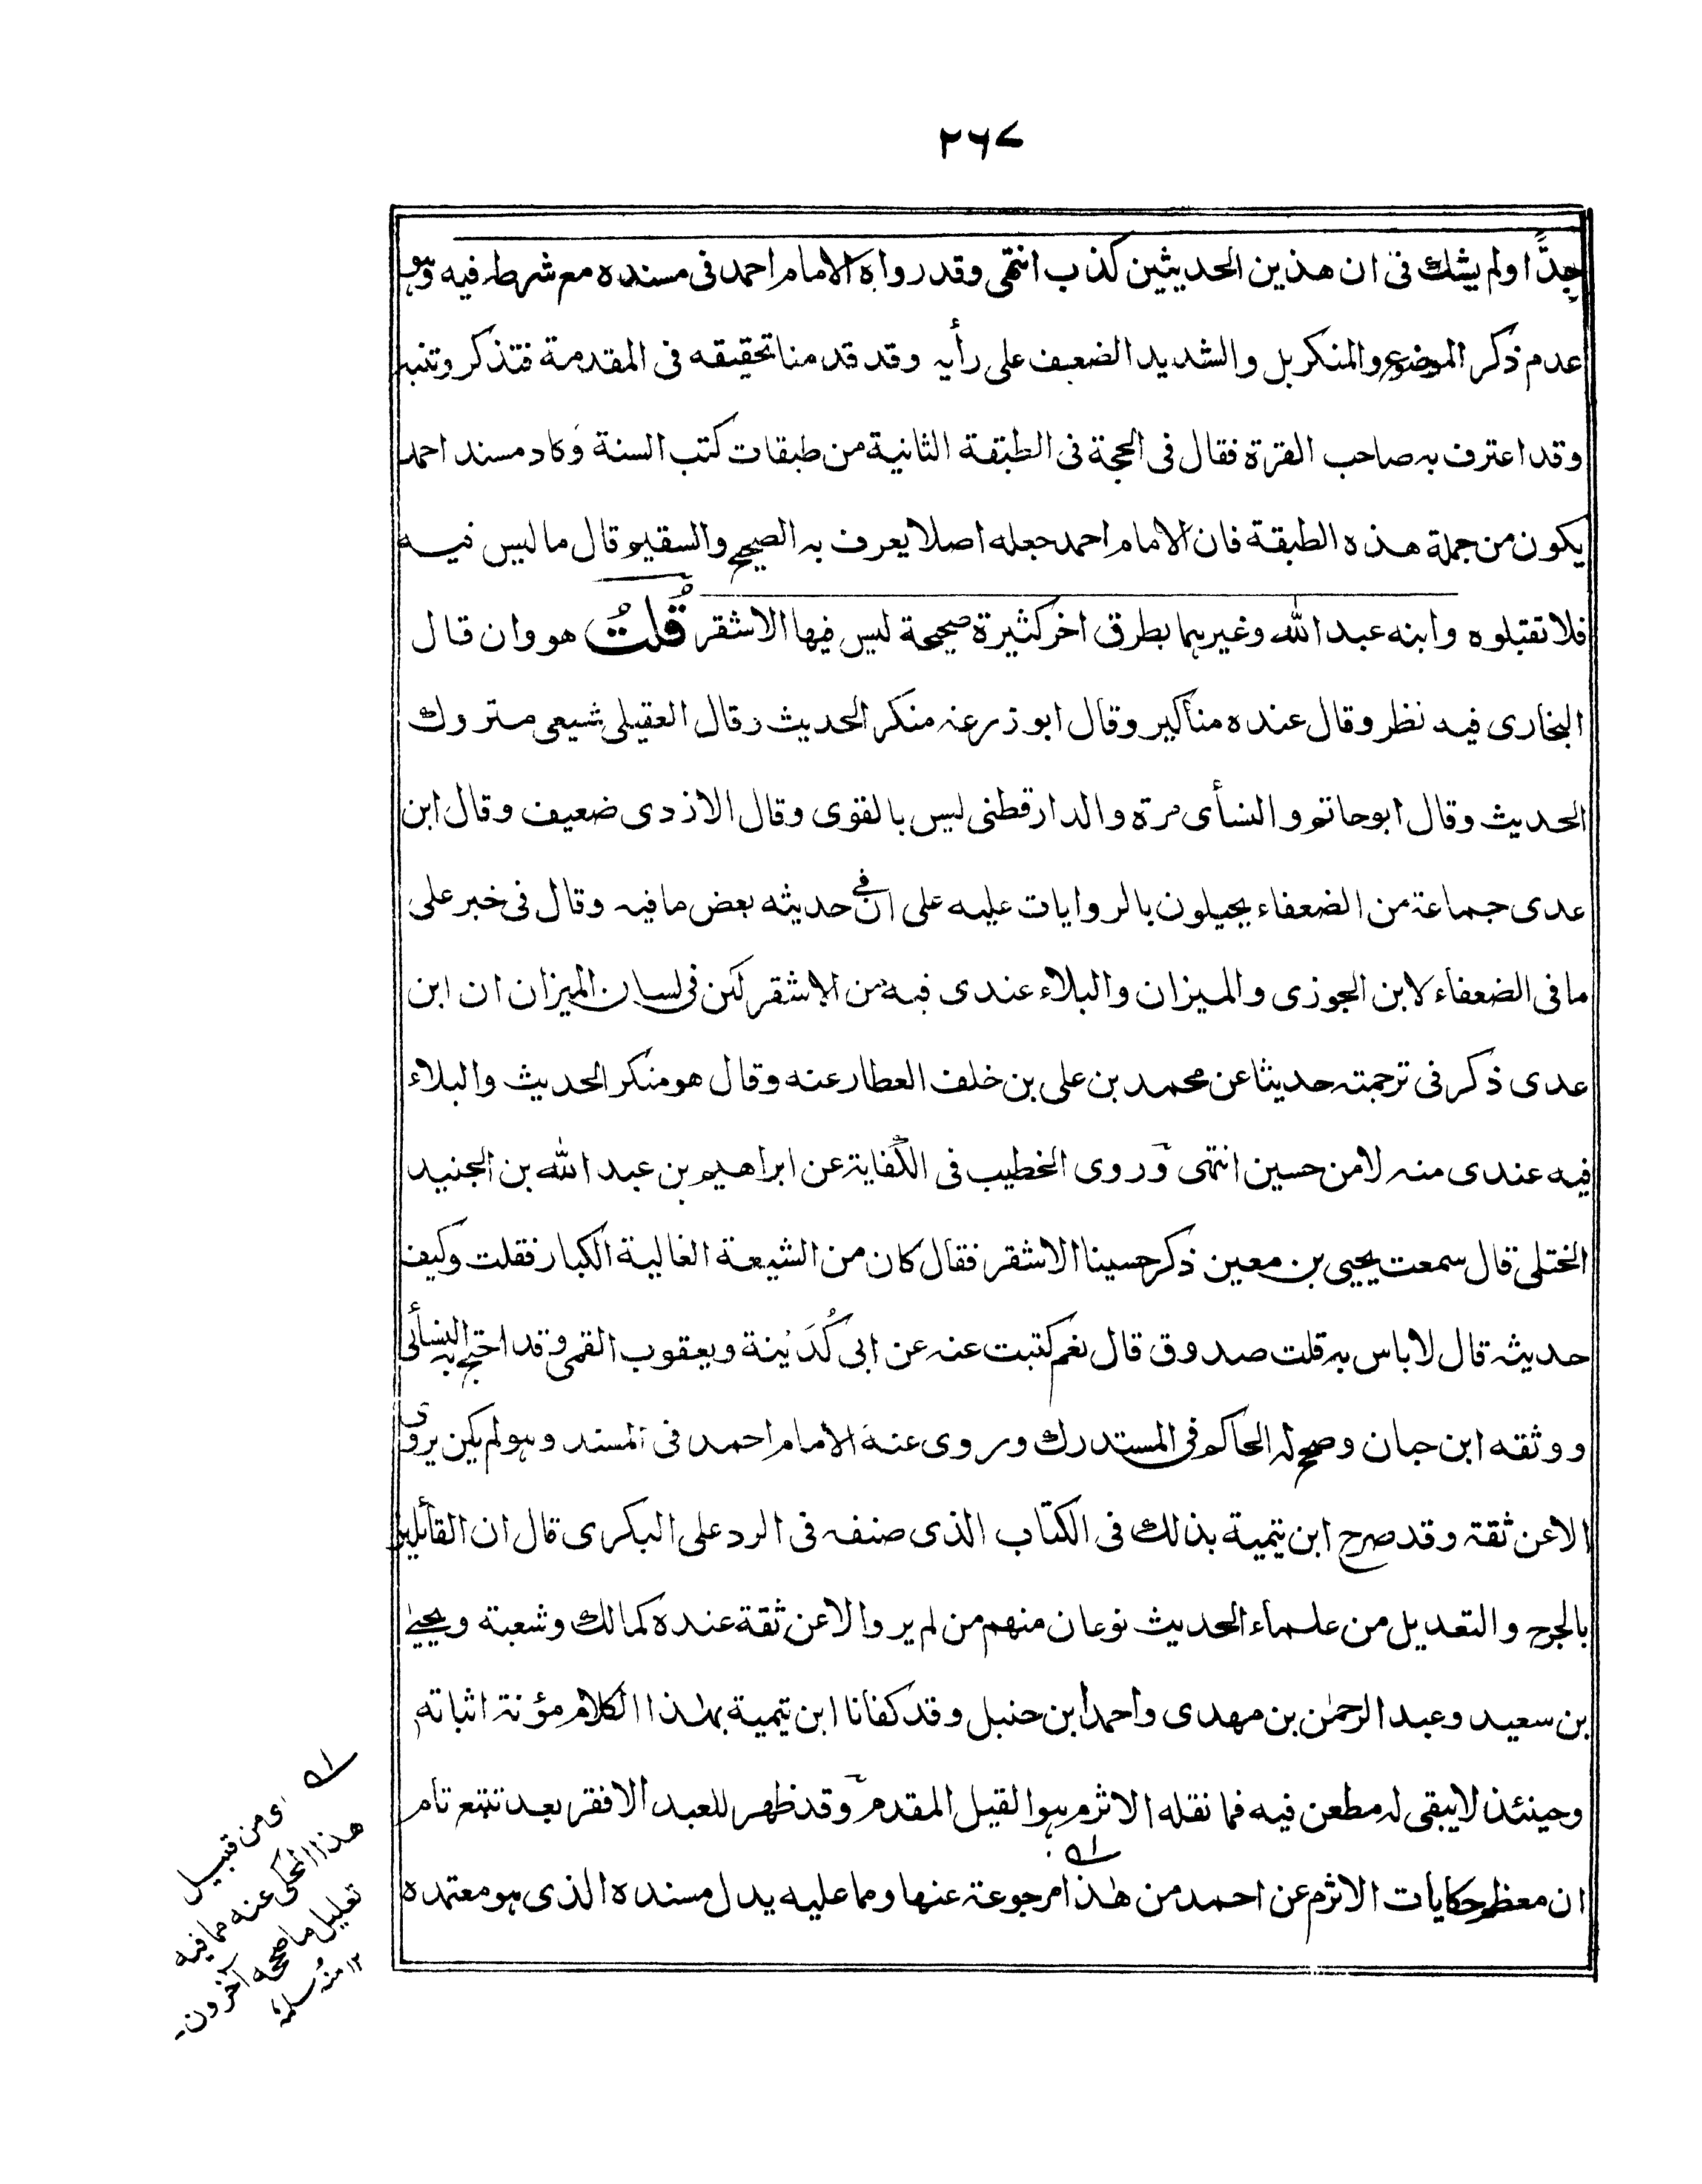 ٢٦٧
جدًّا ولم يشك فى ان هذين الحديثين كذب انتهى وقد رواه الامام احمد فى مسنده مع شرطه فيه وهو
عدم ذكر الموضوع والمنكر بل والشديد الضعيف على رأيه وقد قدمنا تحقيقه فى المقدمة فتذكر وتنبه
وقد اعترف به صاحب القرة فقال فى الحجة فى الطبقة الثانية من طبقات كتب السنة وكاد مسند احمد
يكون من جملة هذه الطبقة فان الامام احمد جعله اصلا يعرف به الصحيح والسقيم قال ما ليس فيه
فلا تقبلوه وابنه عبد الله وغيرهما بطرق اخر كثيرة صحيحة ليس فيها الاشقر قُلتُ هو وان قال
البخارى فيه نظر وقال عنده مناكير وقال ابو زرعة منكر الحديث وقال العقيلى شيعى متروك
الحديث وقال ابوحاتم والنسأى مرة والدارقطنى ليس بالقوى وقال الازدى ضعيف وقال ابن
عدى جماعة من الضعفاء يحيلون بالروايات عليه على ان فى حديثه بعض مافيه وقال فى خبر على
ما فى الضعفاء لابن الجوزى والميزان والبلاء عندى فيه من الاشقر لكن فى لسان الميزان ان ابن
عدى ذكر فى ترجمته حديثا عن محمد بن على بن خلف العطار عنه وقال هو منكر الحديث والبلاء
فيه عندى منه لا من حسين انتهى وروى الخطيب فى الكفاية عن ابراهيم بن عبد الله بن الجنيد
الختلى قال سمعت يحيى بن معين ذكر حسينا الاشقر فقال كان من الشيعة الغالية الكبار فقلت وكيف
حديثه قال لا باس به قلت صدوق قال نعم كتبت عنه عن ابى كُدَيْنة ويعقوب القمى وقد احتج به النسأى
ووثقه ابن حبان وصحح له الحاكم فى المستدرك وروى عنه الامام احمد فى المسند وهو لم يكن يروى
الا عن ثقة وقد صرح ابن تيمية بذلك فى الكتاب الذى صنفه فى الرد على البكرى قال ان القائلين
بالجرح والتعديل من علماء الحديث نوعان منهم من لم يرو الا عن ثقة عنده كمالك وشعبة ويحيى
بن سعيد وعبد الرحمٰن بن مهدى واحمد ابن حنبل وقد كفانا ابن تيمية بهٰذا الكلام مؤنة اثباته
وحينئذ لا يبقى له مطعن فيه فما نقله الاثرم هو القيل المقدم وقد ظهر للعبد الافقر بعد تتبع تام
ان معظم حكايات الاثرم عن احمد من هٰذا مرجوعة عنها ومما عليه يدل مسنده الذى هو معتمده
اى من قبيل
هذا المحكى عنه مما فيه
تعليل ما صححه آخرون۔
١٢ منه سلمه